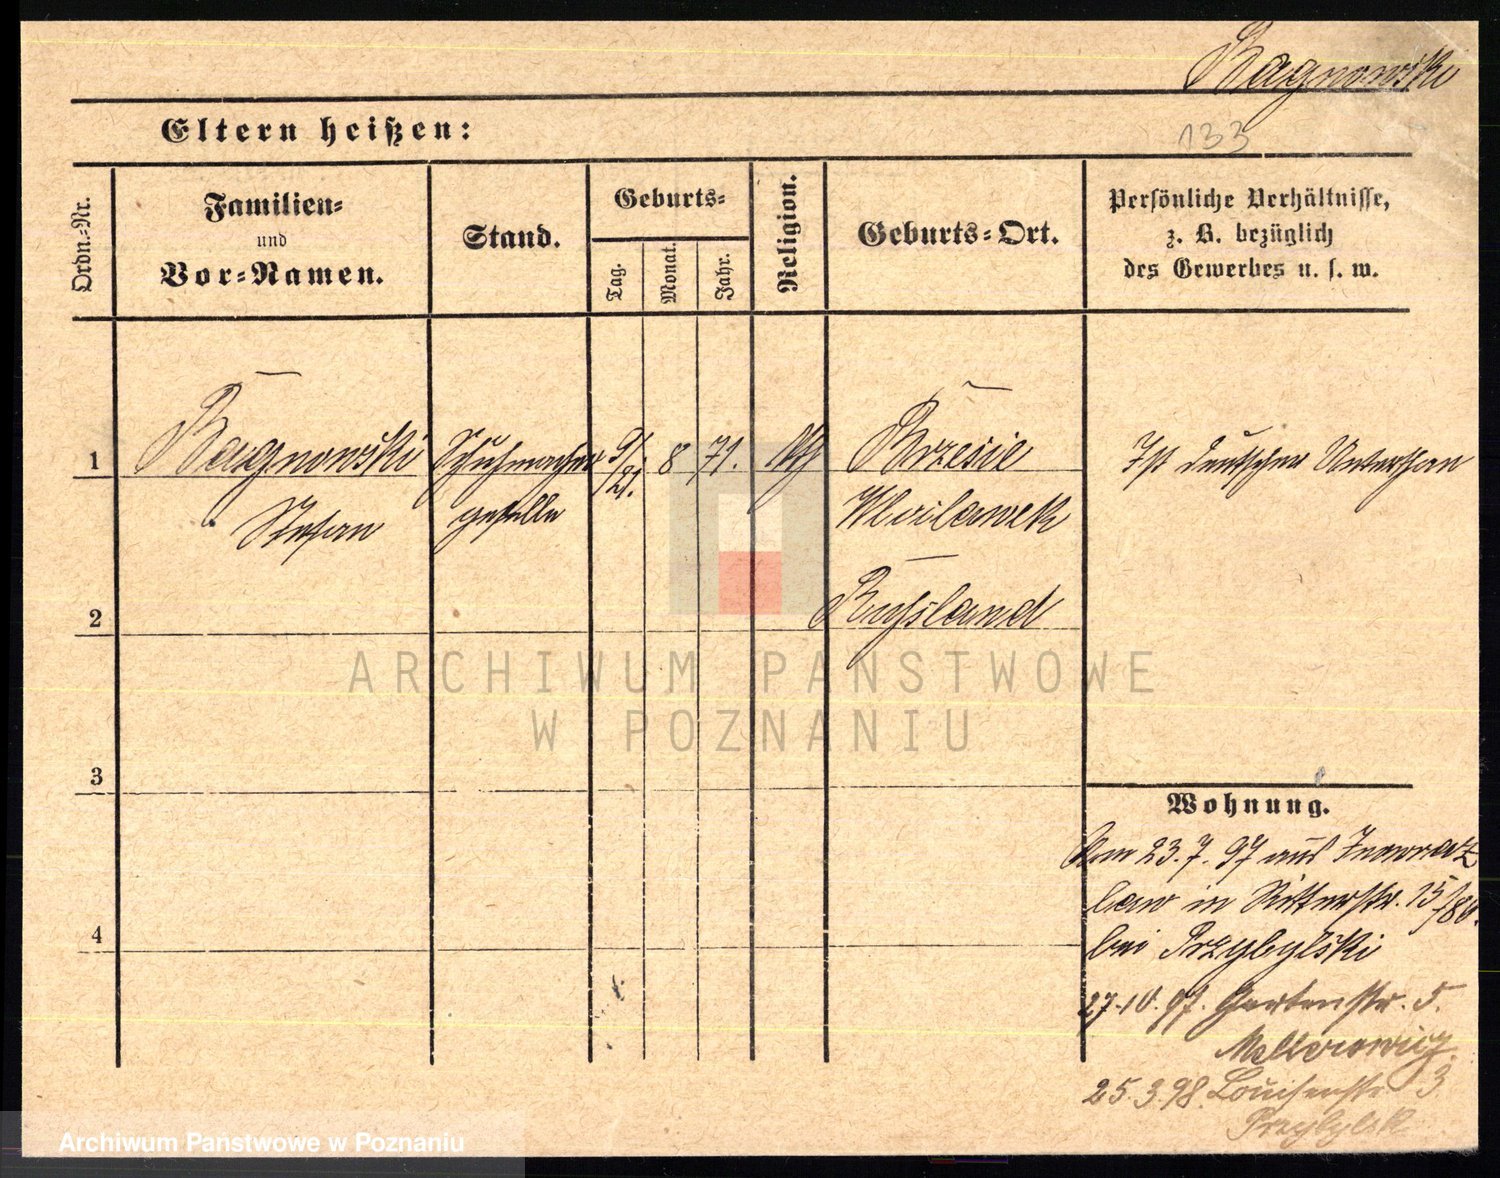 Bagnowski
133
Eltern heißen:
Ordn.-Nr.
Familien-
und
Vor-Namen.
Stand.
Geburts-
Tag.
Monat.
Jahr.
Religion.
Geburts-Ort.
Persönliche Verhältnisse,
z. B. bezüglich
des Gewerbes u. s. w.
1
Bagnowski
Stefan
Schuhmacher
geselle
9/
21.
8
71.
kth
Brzesie
Wloclawek
Russland
Ist deutscher Unterthan
2
3
4
Wohnung.
Am 23.7.97 aus Inowraz
law in Ritterstr. 15/
bei Przybylski
27.10.97. Gartenstr. 5.
25.3.98. Louisenstr 3
Przybylsk
ARCHIWUM PAŃSTWOWE
W POZNANIU
Archiwum Państwowe w Poznaniu